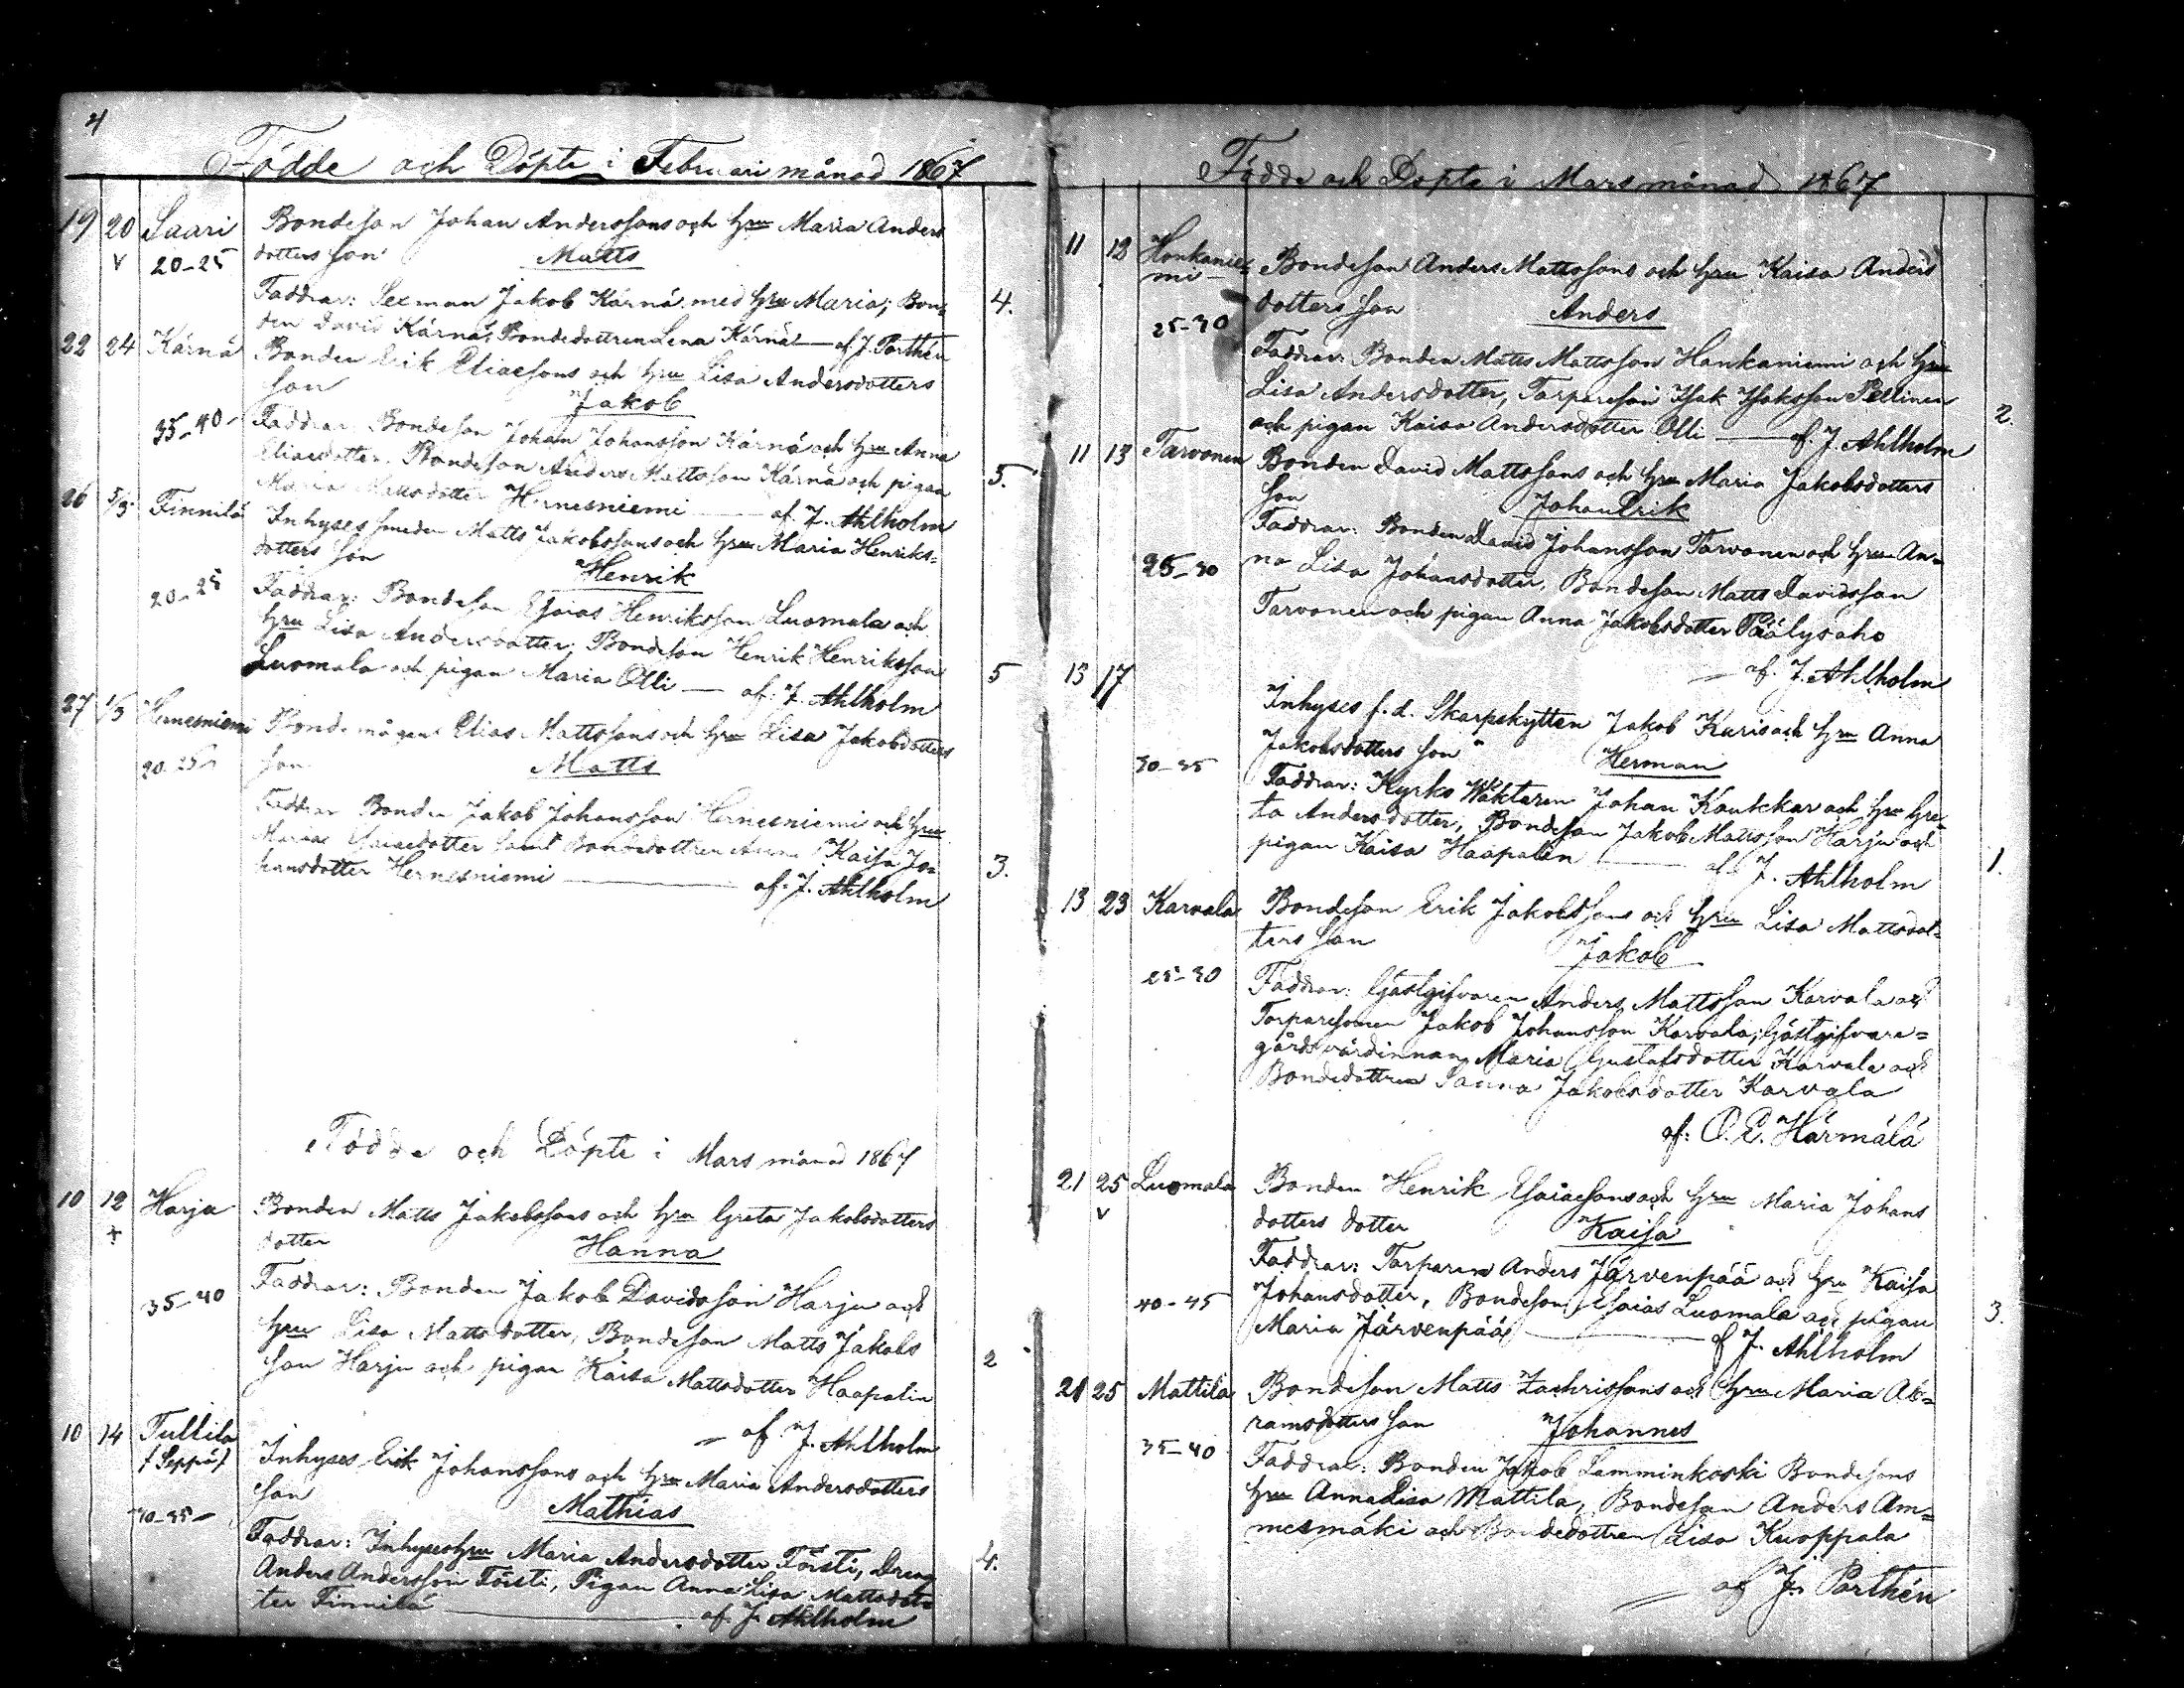 4
Födde och Döpte i Februari månad 1867
19 20 Saari Bondeson Johan Anderssons och hru Maria Anders
v 20-25 dotters son Matts
Faddrar: Sexman Jakob Kärnä med hru Maria; Bon=
den David Kärnä, Bondedottren Lena Kärnä — af J. Porthén
4.
22 24 Kärnä Bonden Erik Eliaesons och hru Lisa Andersdotters
son Jakob
35-40 Faddrar: Bondeson Johan Johansson Kärnä och hru Anna
Eliaedotter, Bondeson Anders Mattsson Kärnä och pigan
Maria Mattsdotter Hernesniemi — af. J. Ahlholm
5.
26 5/3 Finnilä Inhyses smeden Matts Jakobssons och hru Maria Henriks=
dotters son Henrik
20-25 Faddrar: Bondeson Esaias Henriksson Luomala och
hru Lisa Andersdotter; Bondeson Henrik Henriksson
Luomala och pigan Maria Olli — af: J. Ahlholm
5
27 1/3 Hernesniemi Bonde mågens Elias Mattssons och hru Lisa Jakobsdotters
20-25 son Matts
Faddrar Bonden Jakob Johansson Hernesniemi och hru
Maria Esaiaedotter samt Bondedottren Anna Kaisa Jo=
hansdotter Hernesniemi — af: J. Ahlholm
3.
Födde och Döpte i Mars månad 1867
10 12 Harju Bonden Matts Jakobssons och hru Greta Jakobsdotters
+ dotter Hanna
35-40 Faddrar: Bonden Jakob Davidsson Harju och
hru Lisa Mattsdotter, Bondeson Matts Jakobs
son Harju och pigan Kaisa Mattsdotter Haapalin
2
— af J. Ahlholm
10 14 Tullila (Seppä) Inhyses Erik Johanssons och hru Maria Andersdotters
son Mathias
30-35 Faddrar: Inhyseshru Maria Andersdotter Töisti, Dreng
Anders Andersson Töisti, Pigan Anna Lisa Mattsdot=
ter Finnilä — af. J. Ahlholm
4.
Födde och Döpte i Mars månad 1867
11 12 Honkanie=
mi Bondeson Anders Mattssons och hru Kaisa Anders
25-30 dotters son Anders
Faddrar: Bonden Matts Mattsson Hankaniemi och hru
Lisa Andersdotter, Torpareson Isak Isaksson Pellinen
och pigan Kaisa Andersdotter Olli — af. J. Ahlholm
2.
11 13 Tarvonen Bonden David Mattssons och hru Maria Jakobsdotters
son Johan Erik
Faddrar: Bonden David Johansson Tarvonen och hru An=
25-30 na Lisa Johansdotter, Bondeson Matts Davidsson
Tarvonen och pigan Anna Jakobsdotter Päälysaho
— af. J. Ahlholm
13 17 Inhyses f.d. Skarpskytten Jakob Kuris och hru Anna
Jakobsdotters son Herman
30-35 Faddrar: Kyrko Wäktaren Johan Koukkar och hru Gre=
ta Andersdotter, Bondeson Jakob Mattsson Harju och
pigan Kaisa Haapalin — af J. Ahlholm
1.
13 23 Karvala Bondeson Erik Jakobssons och hru Lisa Mattsdot=
ters son Jakob
25-30 Faddrar: Gästgifvaren Anders Mattsson Karvala och
Torparesonen Jakob Johansson Karvala; Gästgifvare=
gårds värdinnan Maria Gustafsdotter Karvala och
Bondedottren Sanna Jakobsdotter Karvala
af: O. E. Härmälä
21 25 Luomala Bonden Henrik Esaiaesons och hru Maria Johans
v dotters dotter Kaisa
Faddrar: Torparen Anders Järvenpää och hru Kaisa
40-45 Johansdotter, Bondeson Esaias Luomala och pigan
Maria Järvenpää — af J. Ahlholm
3.
21 25 Mattila Bondeson Matts Zachrissons och hru Maria Ab=
ramsdotters son Johannes
35-40 Faddrar: Bonden Jakob Lamminkoski Bondesons
hru Anna Lisa Mattila, Bondeson Anders Am=
mesmäki och Bondedottren Lisa Kuoppala
— af J. Porthén